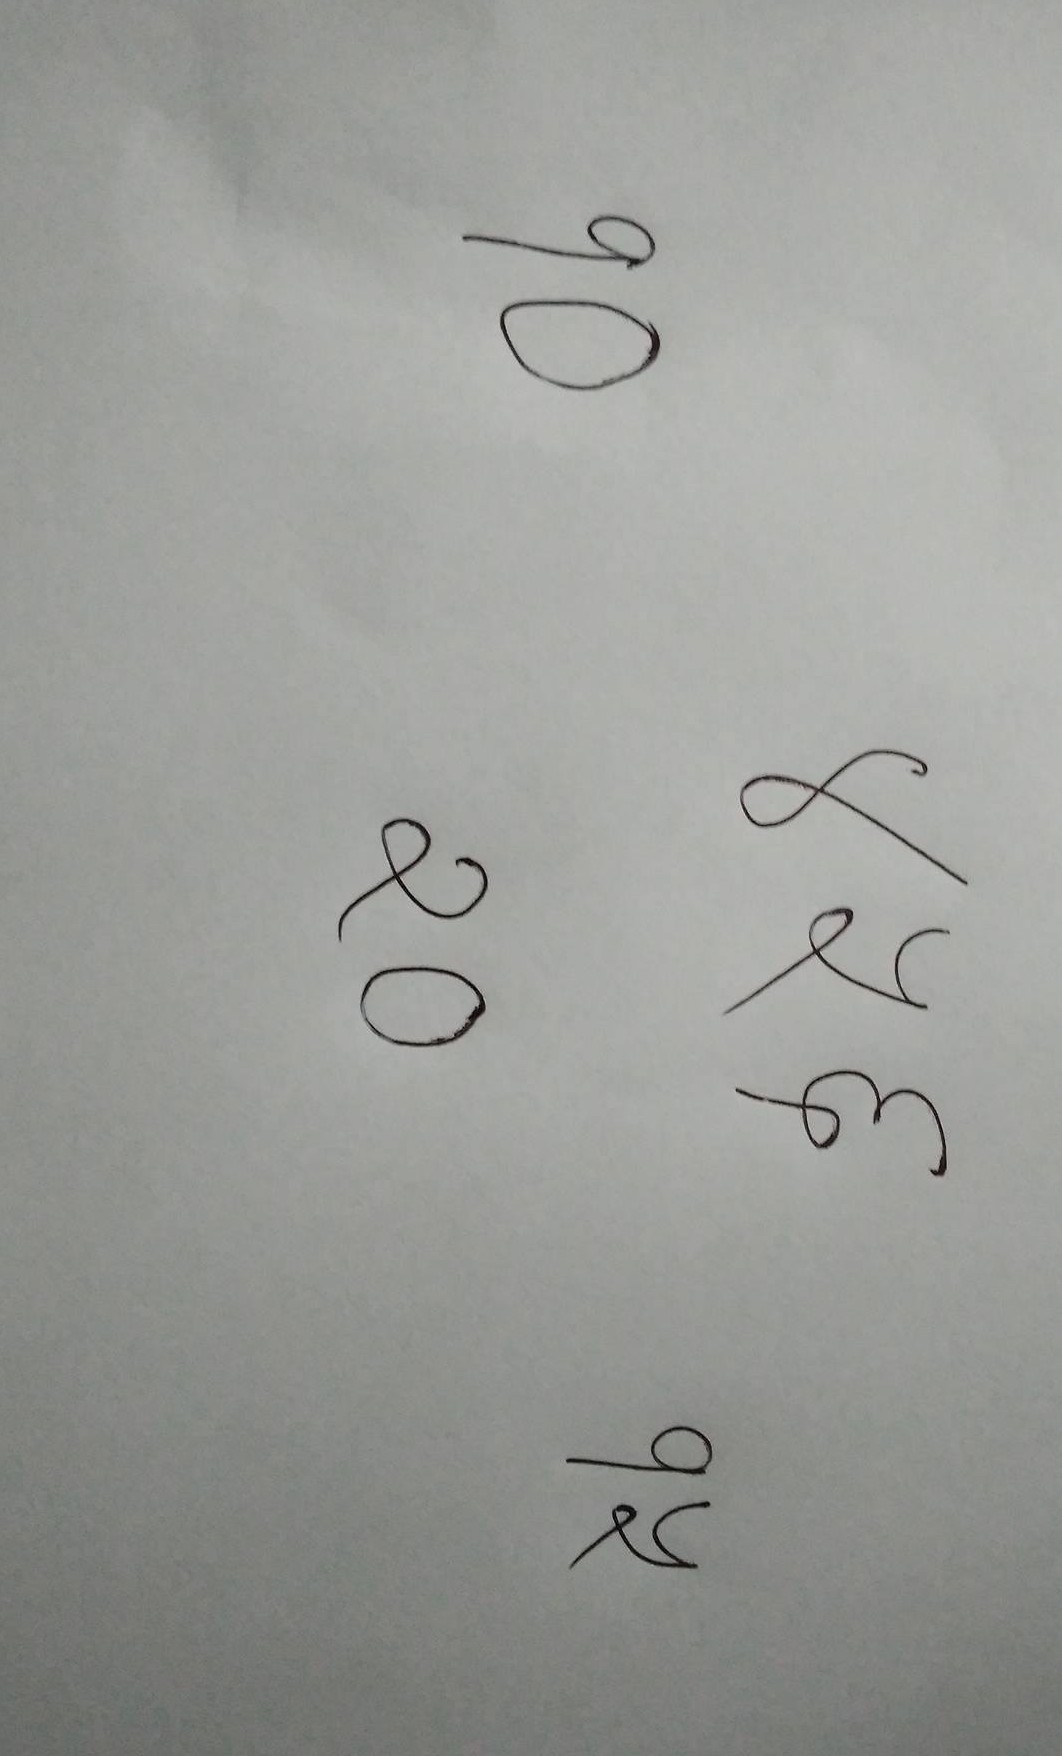 ४५६
१०
१५
२०